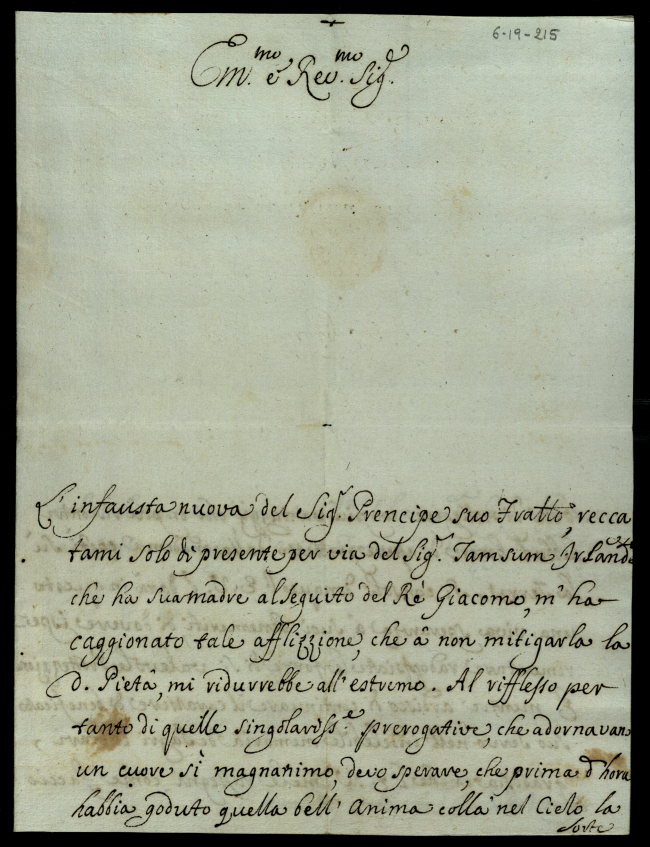 6-19-215
Em.mo e Rev.mo Sig.e
L'infausta nuova del Sig.r Prencipe suo Fratto, recca
tami solo di presente per via del Sig.r Tamsum Jrlandese
che ha sua madre al seguito del Rè Giacomo, m'ha
caggionato tale afflizzione, che à non mitigarla la
d. Pietà, mi ridurrebbe all'estremo. Al rifflesso per
tanto di quelle singolariss.e prerogative, che adornavan
un cuore sì magnanimo, devo sperare, che prima d'hora
habbia goduto quella bell'Anima collà nel Cielo la
sorte